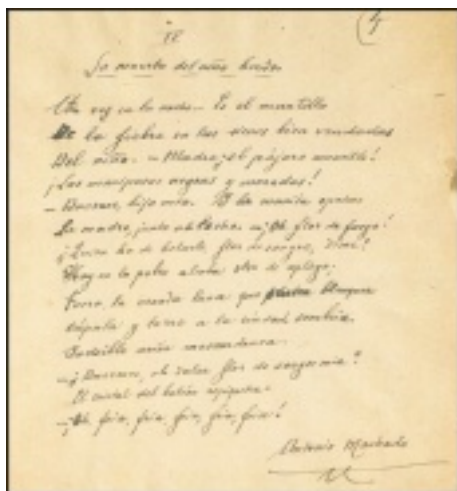 (4
IV
La muerte del niño herido
Otra vez en la noche... Es el martillo
De la fiebre en las sienes bien vendadas
Del niño. — Madre, ¡el pájaro amarillo!
¡Las mariposas negras y moradas!
— Duerme, hijo mío. Y la manita oprime
La madre, junto al lecho. — ¡Oh flor de fuego!
¿Quién ha de helarte, flor de sangre, dime?
Hay en la pobre alcoba olor de espliego;
Fuera, la oronda luna que blanquea
Cúpula y torre a la ciudad sombría.
Invisible avión moscardonea.
— ¿Duermes, oh dulce flor de sangre mía?
El cristal del balcón repiquetea.
— ¡Oh, fría, fría, fría, fría, fría!
Antonio Machado